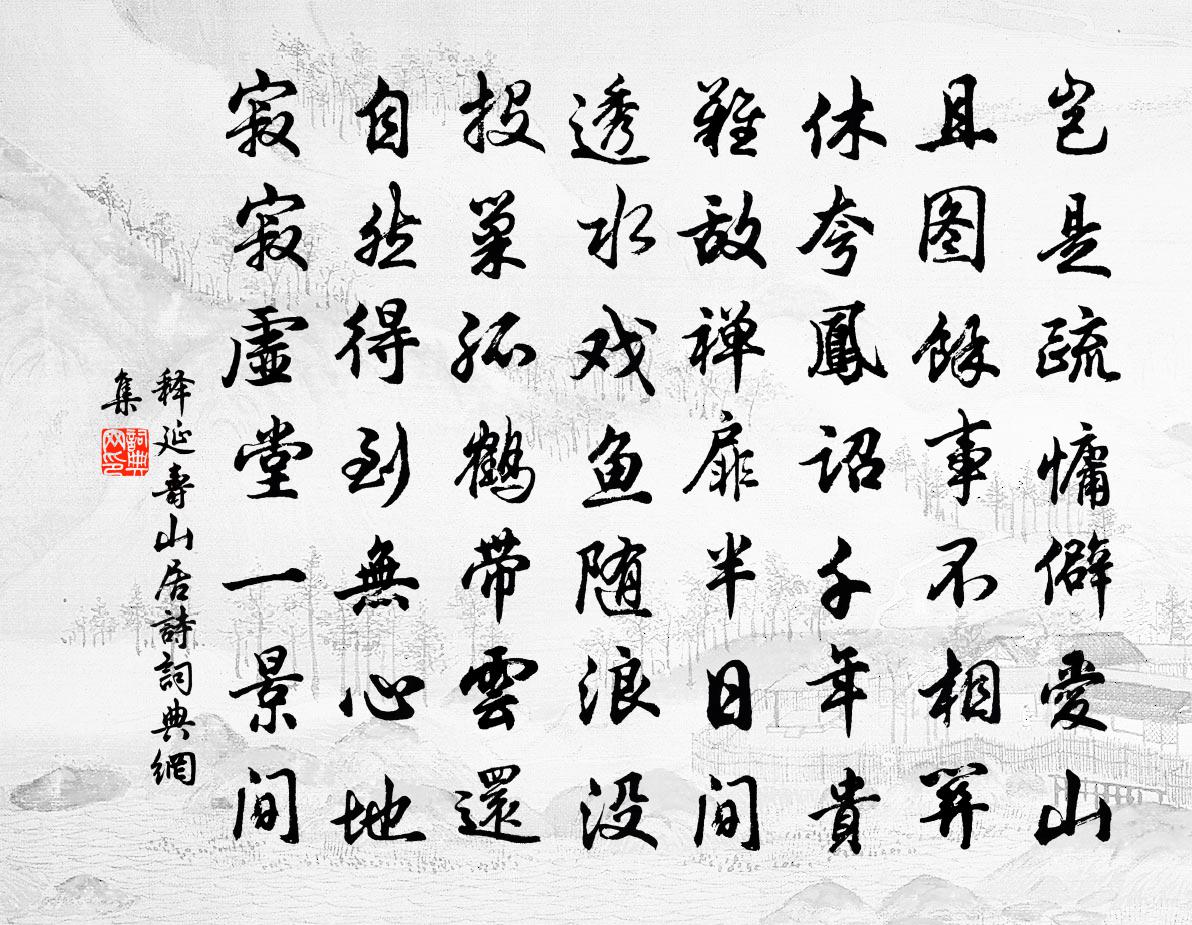 岂是疏慵僻爱山
且图馀事不相关
休夸凤诏千年贵
难敌禅扉半日间
透水戏鱼随浪没
投巢孤鹤带云还
自然得到无心地
寂寂虚堂一景间
释延寿山居诗词典网
集
詞典
网印